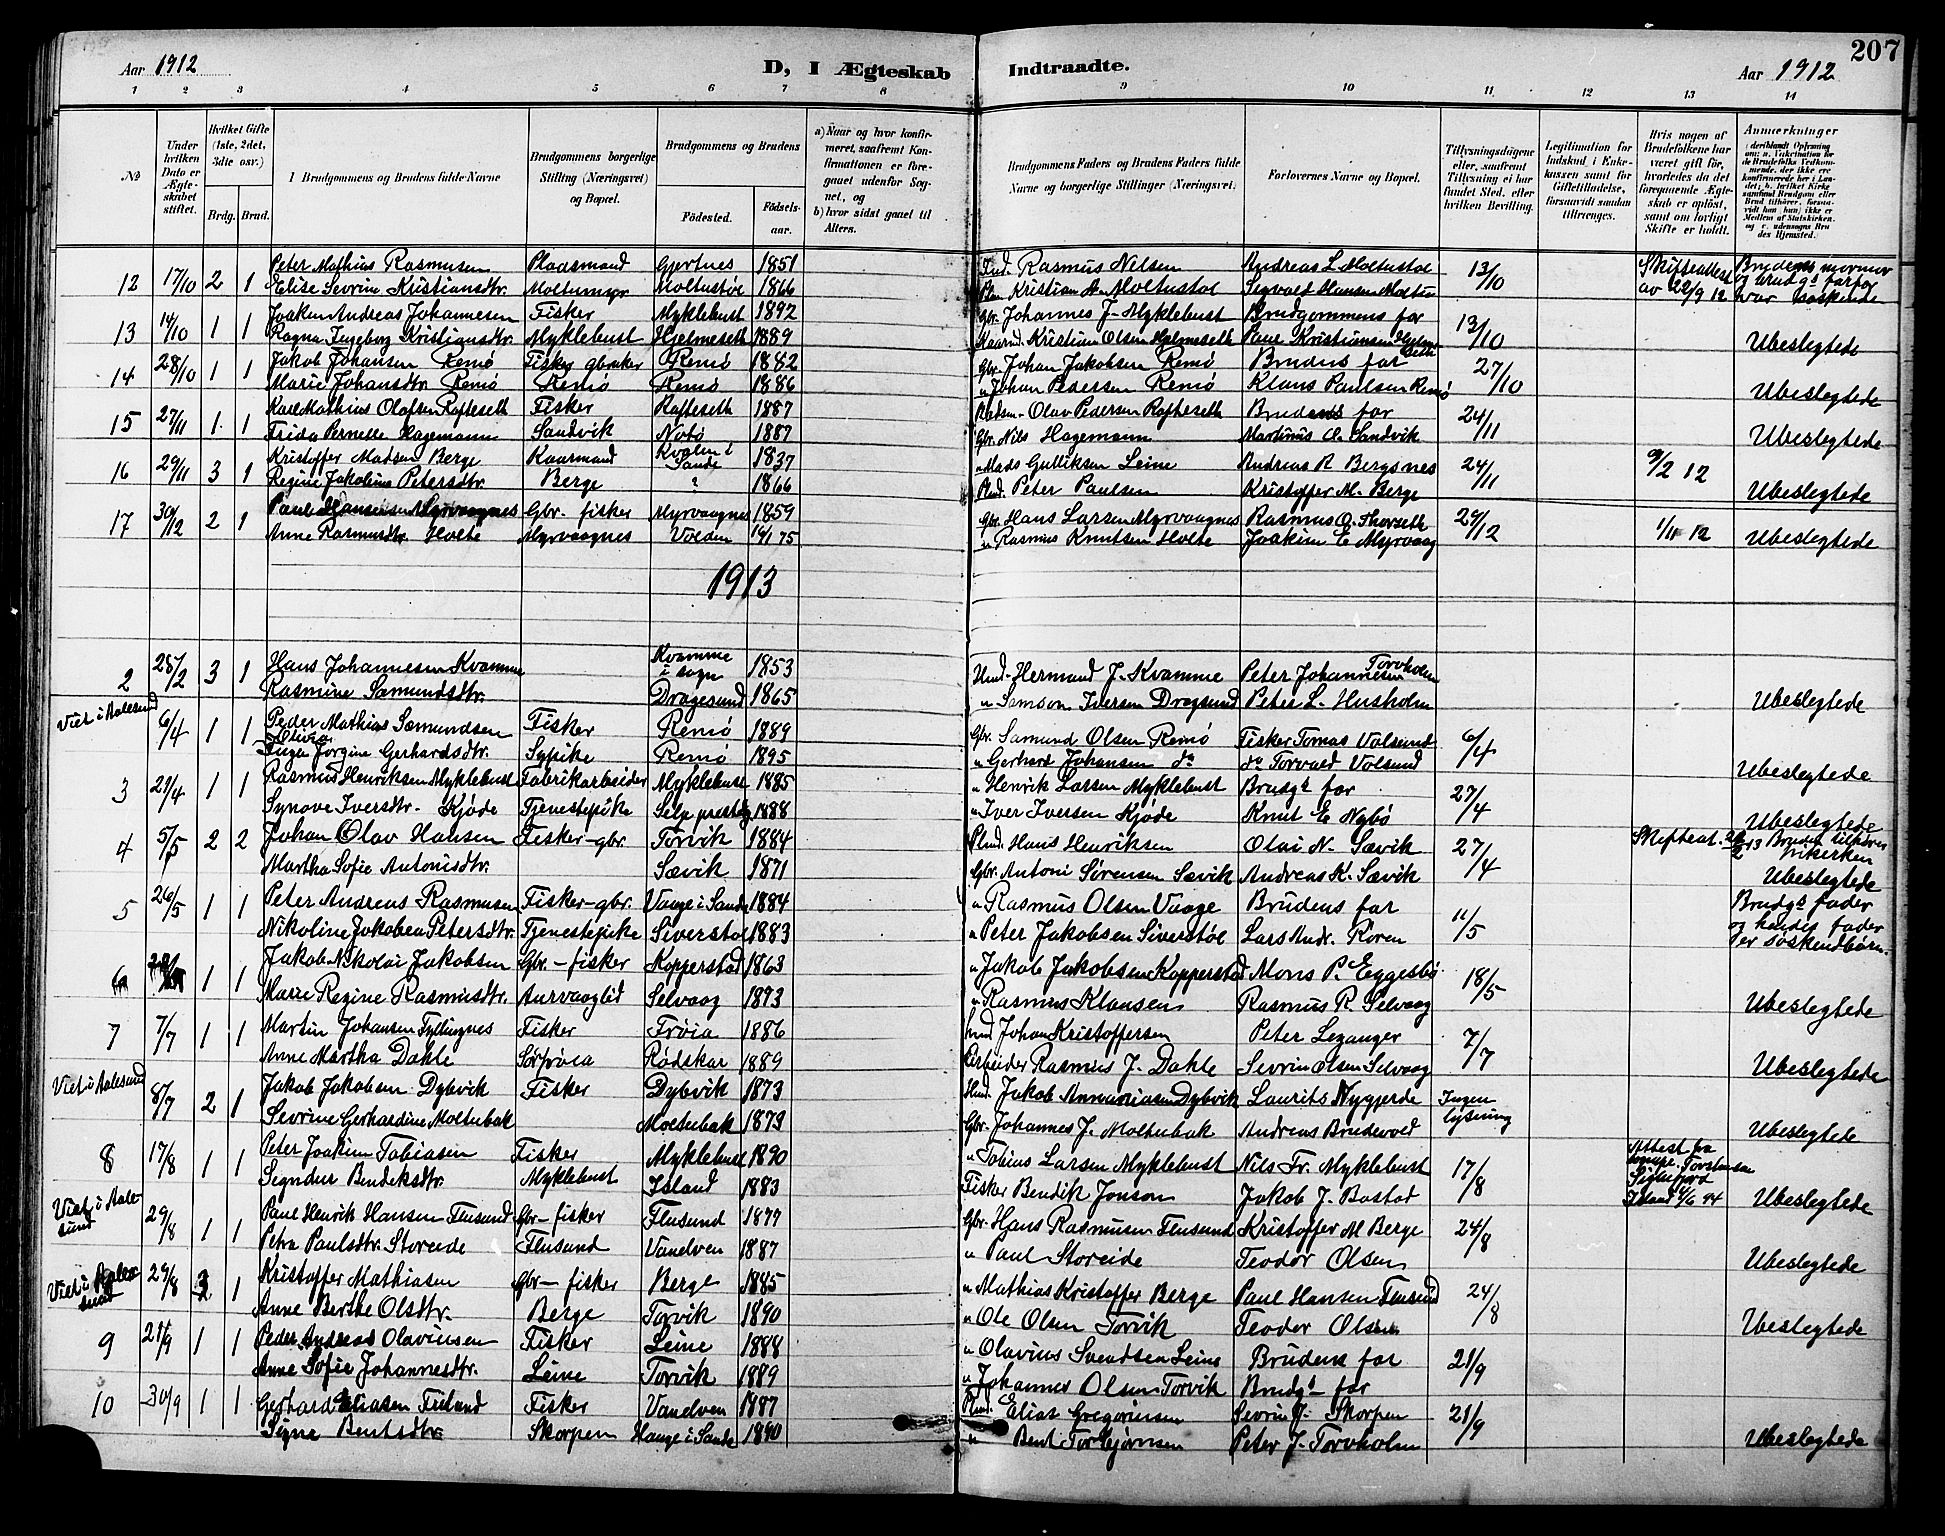 207
Aar 1912
D, I Ægteskab Indtraadte.
Aar 1912
1 2 3 4 5 6 7 8 9 10 11 12 13 14
No
Under hvilken Dato er Ægteskabet stiftet.
Hvilket Gifte (1ste, 2det, 3die osv.)
Brdg. Brud.
Brudgommens og Brudens fulde Navne
Brudgommens borgerlige Stilling (Næringsvei) og Bopæl.
Brudgommens og Brudens
Födested.
Födselsaar.
a) Naar og hvor konfirmeret, saafremt Konfirmationen er foregaaet udenfor Sognet, og
b) hvor sidst gaaet til Alters.
Brudgommens Faders og Brudens Faders fulde Navne og borgerlige Stillinger (Næringsvei).
Forlovernes Navne og Bopæl.
Tillysningsdagene eller, saafremt Tillysning ei har fundet Sted, efter hvilken Bevilling.
Legitimation for Indskud i Enkekassen samt for Giftetilladelse, forsaavidt saadan tiltrænges.
Hvis nogen af Brudefolkene har været gift för, hvorledes da det foregaaende Ægteskab er oplöst, samt om lovligt Skifte er holdt.
Anmærkninger
12 17/10 2 1 Peter Mathias Rasmusen Plaasmand Gjertnes 1851 Rasmus Nilsen Andreas L Moltustol 13/10 Skifteattest Brudens mormor
Elise Sevrine Kristiansdtr. Moltumyr Moltustøl 1866 Kristian A. Moltustol Segvald Hansen Moltu av 22/9 12 og brudgs farfar var søskende
13 14/10 1 1 Joakim Andreas Johannesen Fisker Myklebust 1892 Gbr. Johannes J. Myklebust Brudgommens far 13/10
Ragna Ingeborg Kristiansdtr. Myklebust Hjelmeseth 1889 Kaarmd. Kristian Olsen Hjelmeseth Paul Kristiansen Hjelmeseth Ubeslegtede
14 28/10 1 1 Jakob Johansen Remø Fisker gbruker Remø 1882 Gbr. Johan Jakobsen Remø Brudens far 27/10
Marie Johansdtr. Remø Remø Remø 1886 " Johan Pedersen Remø Klaus Paulsen Remø Ubeslegtede
15 27/11 1 1 Karl Mathias Olafsen Rafteseth Fisker Rafteseth 1887 Olav Pedersen Rafteseth Brudens far 24/11
Frida Pernelle Hagemann Sandvik Notø 1887 Gbr. Nils Hagemann Martinus O. Sandvik Ubeslegtede
16 29/11 3 1 Kristoffer Madsen Berge Kaarmand Kvalen i Sande 1837 " Mads Gulliksen Leine Andreas R Bergsnes 24/11 9/2 12
Regine Jakobine Petersdtr. Berge " 1866 Plmd. Peter Paulsen Kristoffer M. Berge Ubeslegtede
17 30/12 2 1 Paul Hansen Myrvaagnes Gbr. fisker Myrvaagnes 1859 Gbr. Hans Larsen Myrvaagnes Rasmus O. Thorseth 29/12 1/11 12
Anne Rasmusdtr. Holte Myrvaagnes Volden 14/1 75 " Rasmus Knutsen Holte Joakim E Myrvaag Ubeslegtede
1913
2 28/2 3 1 Hans Johannesen Kvamme Kvamme i sogn 1853 Hmd. Hermund J. Kvamme Peter Johannesen Torvholm
Rasmine Samundsdtr. Dragesund 1865 " Samson Iversen Dragsund Peter L. Husholm Ubeslegtede
Viet i Aalesund 6/4 1 1 Peder Mathias Samundsen Fisker Remø 1889 Gbr. Samund Olsen Remø Fisker Tomas Volsund 6/4
Inga Olivia Jorgine Gerhardsdtr. Sypike Remø 1895 " Gerhard Johansen do do Torvald Volsund Ubeslegtede
3 27/4 1 1 Rasmus Henriksen Myklebust Fabrikarbeider Myklebust 1885 " Henrik Larsen Myklebust Brudgs far 27/4
Synove Iversdtr. Kjøde Tjenestepike Selje prestegj 1888 " Iver Iversen Kjøde Knut E Nybø Ubeslegtede
4 5/5 2 2 Johan Olav Hansen Fisker-gbr. Torvik 1884 Plmd. Hans Henriksen Olai N. Sævik 27/4 Skifteat. Bruden tilhører frikirken
Martha Sofie Antonisdtr. Sævik 1871 Gbr. Antoni Sørensen Sævik Andreas K. Sævik Ubeslegtede
5 26/5 1 1 Peter Andreas Rasmusen Fisker-gbr. Vaage i Sande 1884 " Rasmus Olsen Vaage Brudens far 11/5 Brudgs fader
Nikoline Jakobea Petersdtr. Tjenestepike Siverstol 1883 " Peter Jakobsen Siverstøl Lars Andr. Roren og hendes fader er søskendbørn.
6 1 1 Jakob Nikolai Jakobsen Gbr.-fisker Kopperstad 1863 " Jakob Jakobsen Kopperstad Mons P. Eggesbø 18/5
Marie Regine Rasmusdtr. Aurvaaglid Selvaag 1893 " Rasmus Klausen Rasmus R. Selvaag Ubeslegtede
7 7/7 1 1 Martin Johansen Tyllingnes Fisker Frøia 1886 Johan Kristoffersen Peter Lezanger 7/7
Anne Martha Dahle Sørfrøia Rødskar 1889 Arbeider Rasmus J. Dahle Sevrin Olsen Selvaag Ubeslegtede
Viet i Aalesund 8/7 2 1 Jakob Jakobsen Dybvik Fisker Dybvik 1873 Hmd. Jakob Annaniasen Dybvik Laurits Nygjerde Ingen lysning
Sevrine Gerhardine Moltubak Moltubak 1879 Gbr. Johannes J. Moltubak Andreas Brudevold Ubeslegtede
8 17/8 1 1 Peter Joakim Tobiasen Fisker Myklebust 1890 " Tobias Larsen Myklebust Nils Fr. Myklebust 17/8 Attest fra Torstensen Siglufjord Island
Segndur Bendeksdtr. Myklebust Island 1883 Fisker Bendik Jonson Jakob J. Bostad Ubeslegtede
Viet i Aalesund 29/8 1 1 Paul Henrik Hansen Flusund Gbr-fisker Flusund 1879 Gbr. Hans Rasmusen Flusund Kristoffer M Berge 24/8
Petra Paulsdtr. Storeide Flusund Vanelven 1887 " Paul Storeide Teodor Olsen Ubeslegtede
Viet i Aalesund 29/8 1 Kristoffer Mathiasen Gbr-fisker Berge 1885 " Mathias Kristoffer Berge Paul Hansen Flusund 24/8
Anne Berthe Olsdtr. Berge Torvik 1890 " Ole Olsen Torvik Teodor Olsen Ubeslegtede
9 21/9 1 1 Peder Andreas Olavinsen Fisker Leine 1888 " Olavius Svendsen Leine Brudens far 21/9
Anne Sofie Johannesdtr. Leine Torvik 1889 " Johannes Olsen Torvik Brudgs far
10 30/9 1 1 Gerhard Eliasen Friland Fisker Vanelven 1887 Plmd. Elias Gregoriusen Sevrin J. Skorpen 21/9
Signe Bentsdtr. Skorpen Hauge i Sande 1890 " Bent Torbjørnsen Peter J. Torvholm Ubeslegtede